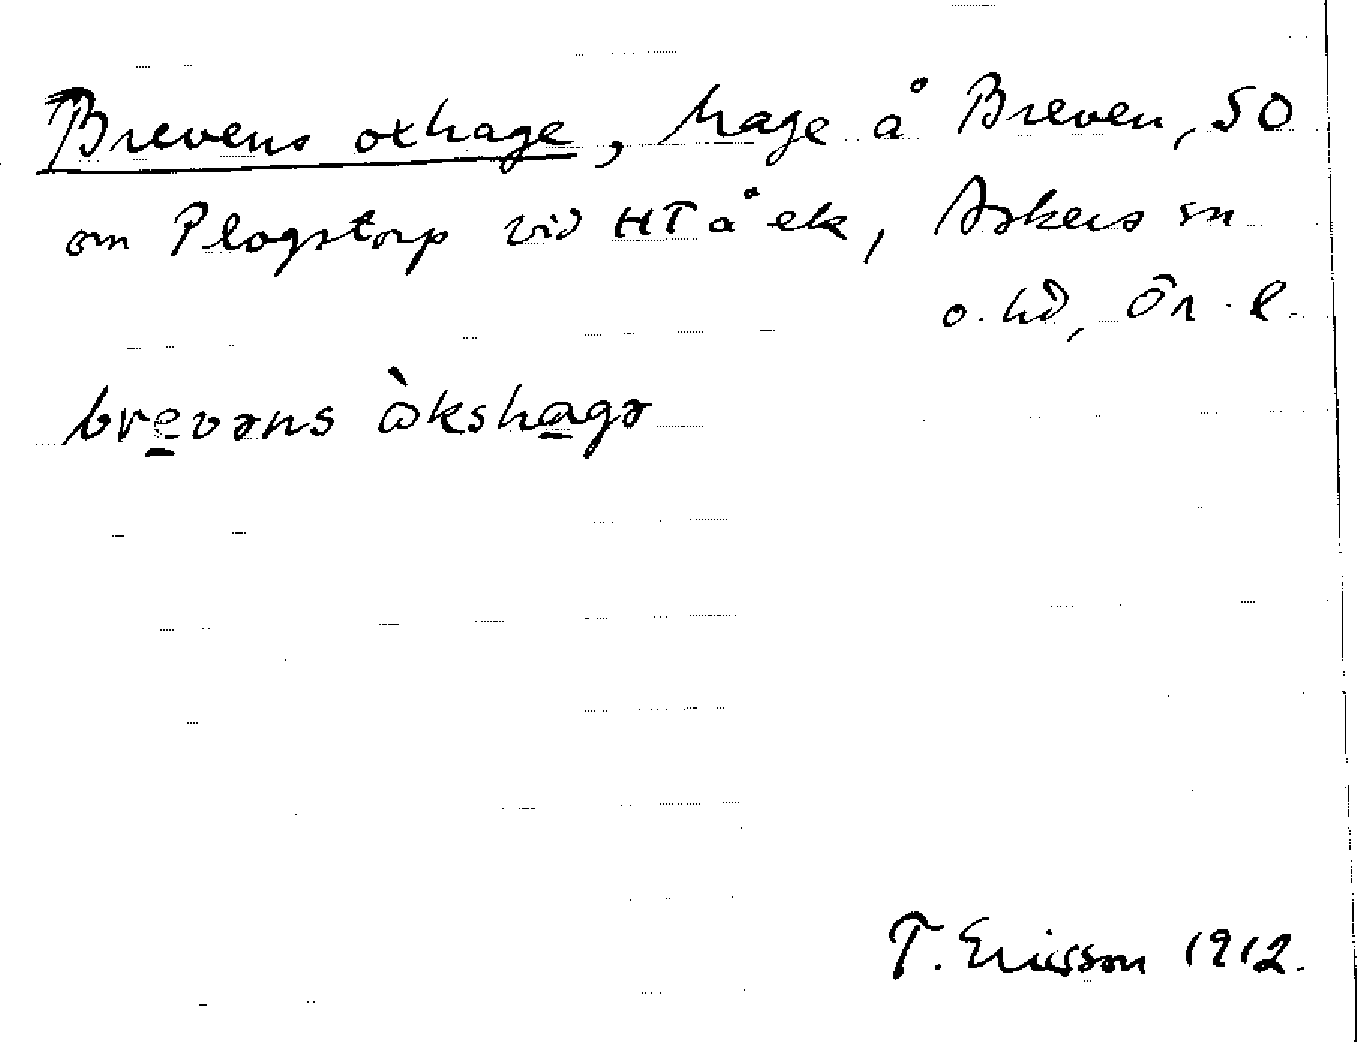 Brevens oxhage, hage å Breven, SO
om Plogstorp vid HT å ek, Askers sn
o. hd, Ör. l.
brevəns òkshagə
T. Ericsson 1912.